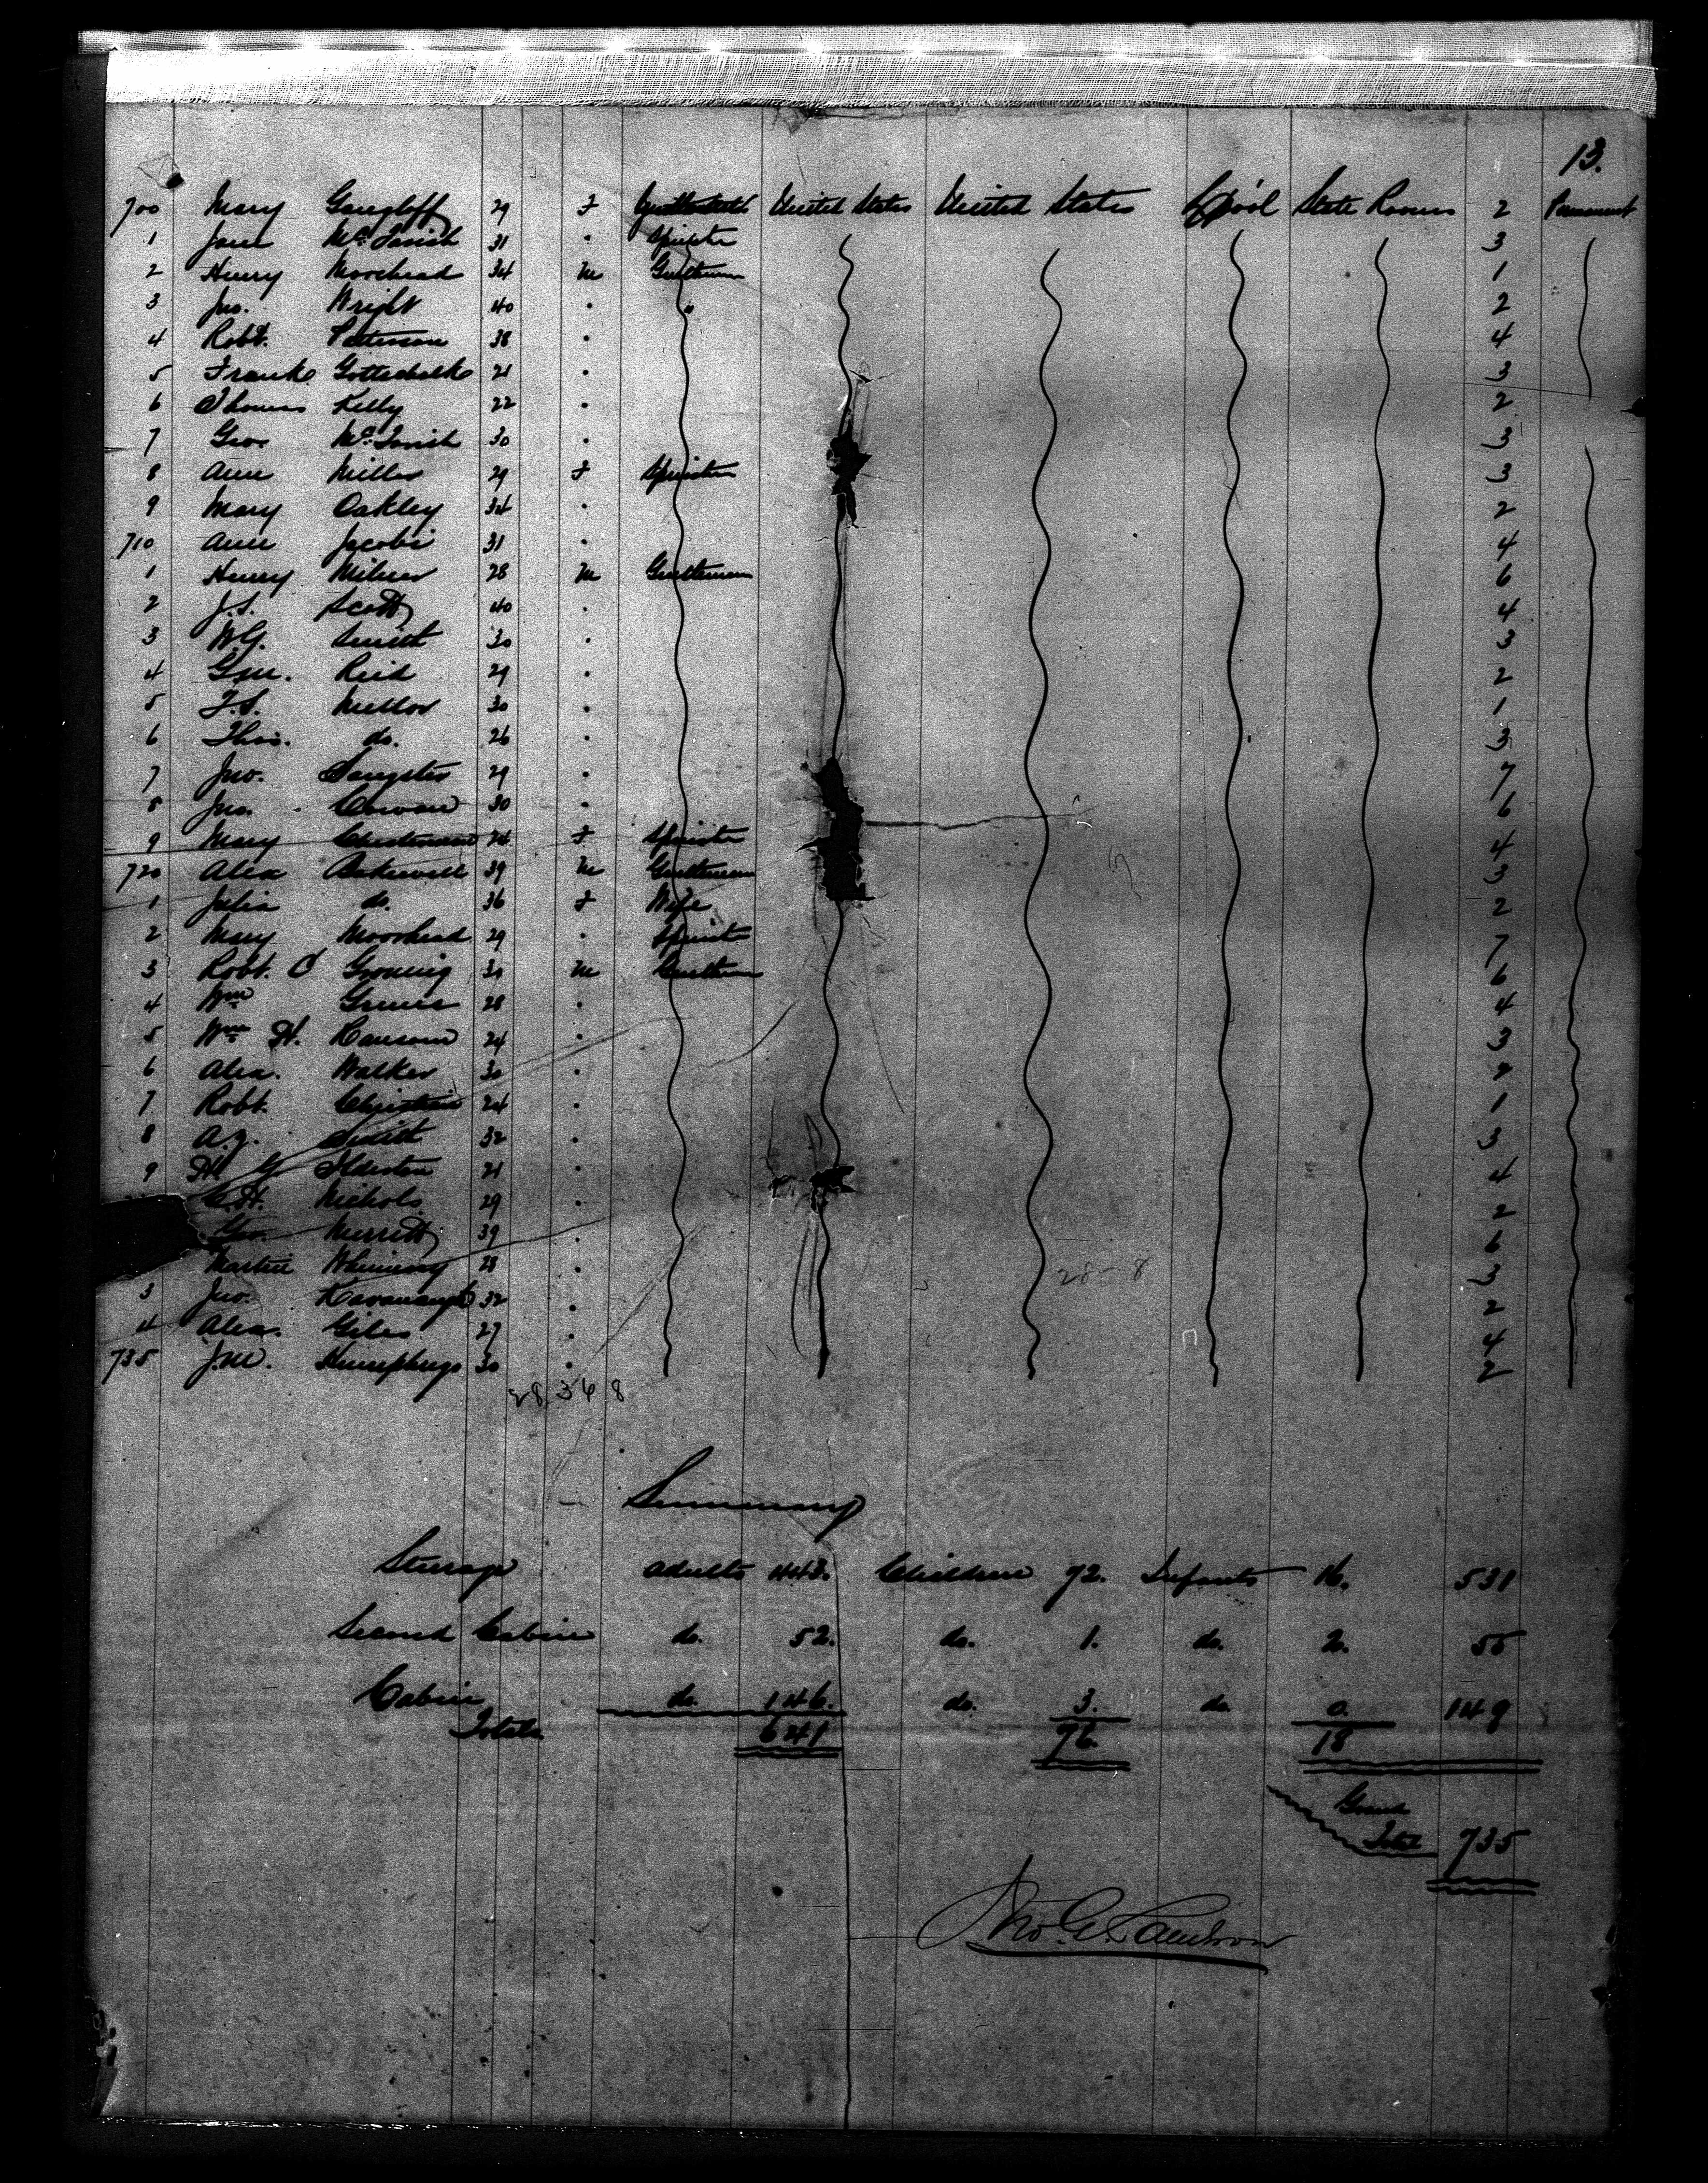 13.
700 Mary Gangloff 29 F United States United States L'pool State Rooms 2 Permanent
1 Jane McTavish 31 " Spinster 3
2 Henry Moorhead 34 M Gentleman 1
3 Jno. Wright 40 " " 2
4 Robt. Paterson 38 " 4
5 Frank Gottschalk 21 " 3
6 Thomas Kelly 22 " 2
7 Geo. McTavish 30 " 3
8 Ann Miller 29 F Spinster 3
9 Mary Oakley 34 " 2
710 Ann Jacobi 31 " 4
1 Henry Milner 28 M Gentleman 6
2 J.S. Scott 40 " 4
3 W.G. Smith 30 " 3
4 Reid 29 " 2
5 F.S. Mellor 30 " 1
6 Thos. do. 26 " 3
7 Jno. Sangster 29 " 7
8 Jno. Cowan 30 " 6
9 Mary 24 F Spinster 4
720 Alex 39 M Gentleman 3
1 Julia do. 36 F Wife 2
2 Mary Moorhead 29 " Spinster 7
3 Robt. C Groning 30 M Gentleman 6
4 Wm 28 " 4
5 Wm H. Ransom 24 " 3
6 Alex. Walker 30 " 2
7 Robt. Christian 24 " 1
8 A.J. Smith 32 " 3
9 H G 21 " 4
C.H. Nichols 29 " 2
Geo. Merritt 39 " 6
Martin 28 " 3
3 Jno. Kavanaugh 32 " 2
4 Alex. Giles 27 " 4
735 J.M. Humphreys 30 " 2
28-8
28 34 8
Summary
Steerage Adults 443. Children 72. Infants 16. 531
Second Cabin do. 52. do. 1. do. 2. 55
Cabin do. 146. do. 3. do 0. 149
Totals 641 76. 18
Grand
Total 735